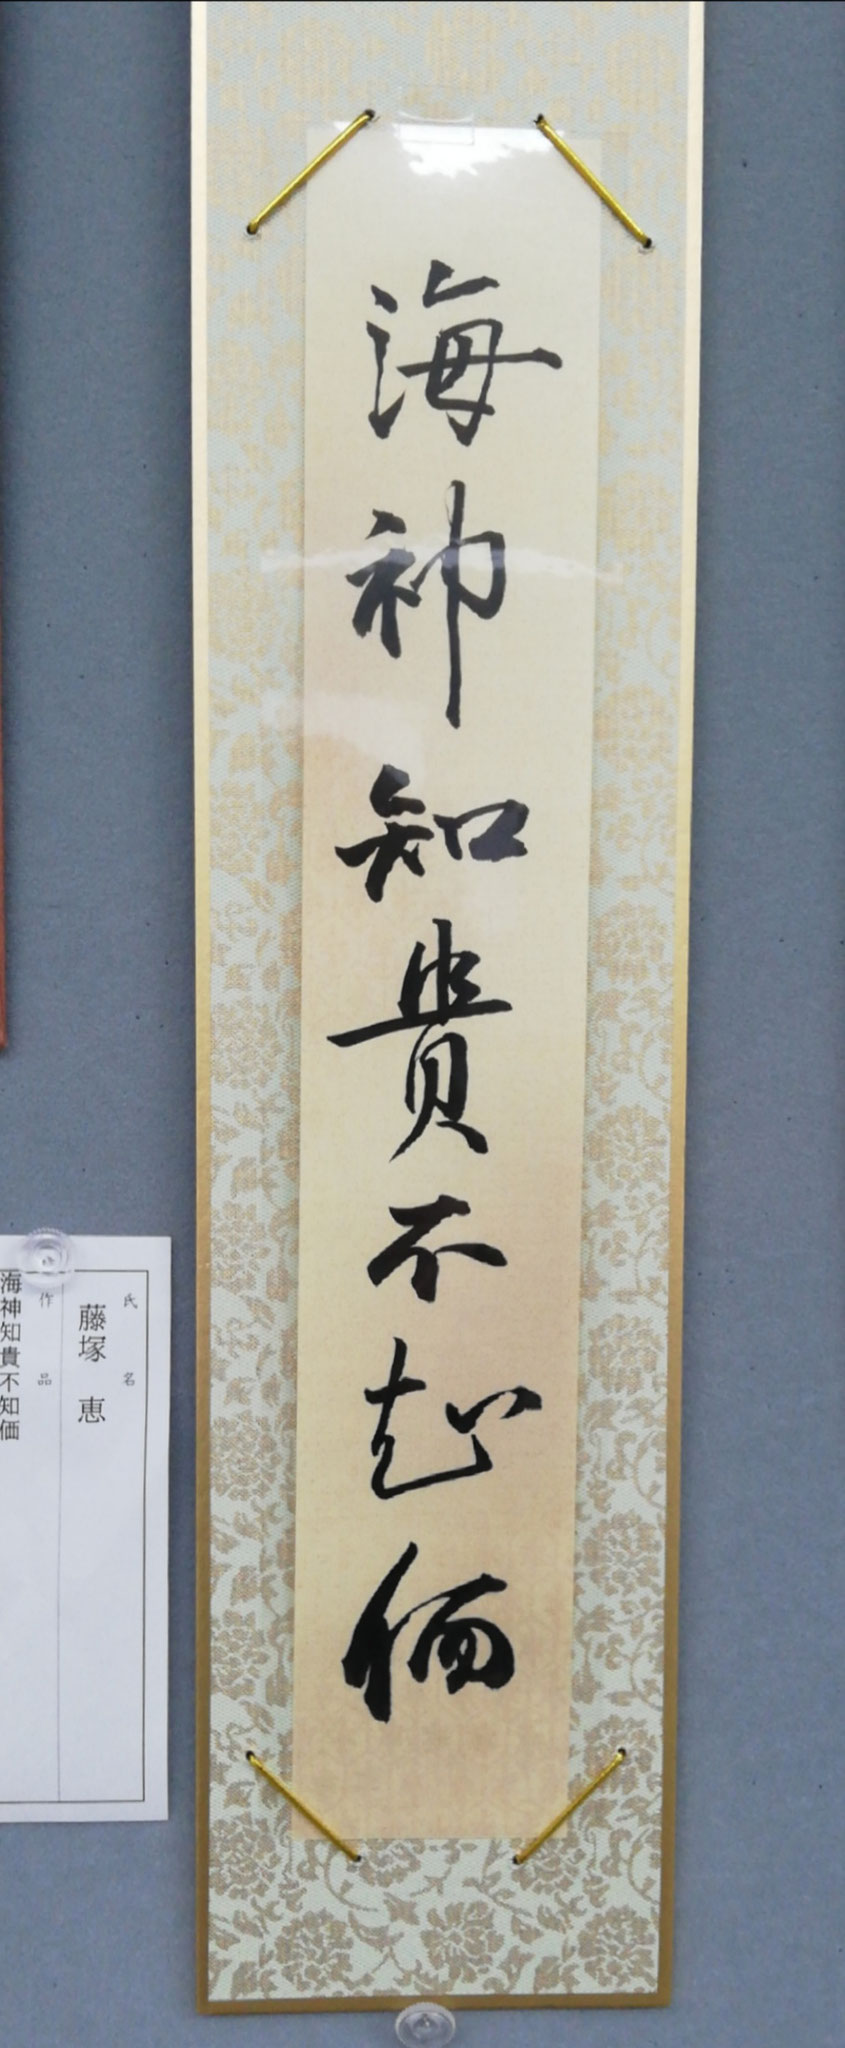 海神知貴不知価
氏名
藤塚 恵
作品
海神知貴不知価